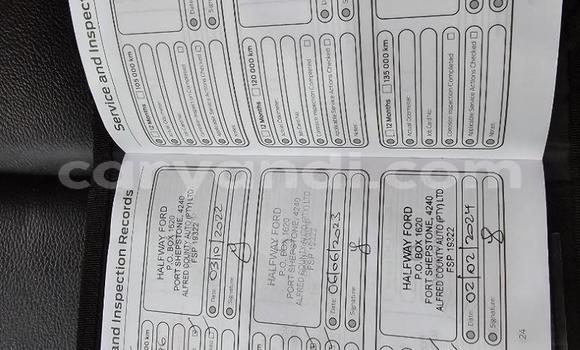 Service and Inspect
105 000 km
12 Months
120 000 km
12 Months
Actual Odometer:
Job Card No:
Corrosion Inspection Completed
Applicable Service Actions Checked
Notes:
135 000 km
12 Months
Actual Odometer:
Job Card No:
Corrosion Inspection Completed
Applicable Service Actions Checked
Notes:
and Inspection Records
HALFWAY FORD
P.O. BOX 1620
PORT SHEPSTONE, 4240
ALFRED COUNTY AUTO (PTY) LTD
FSP 19322
Date: 03/10/2022
Signature:
HALFWAY FORD
P.O. BOX 1620
PORT SHEPSTONE, 4240
ALFRED COUNTY AUTO (PTY) LTD
FSP 19322
Date: 06/06/2023
Signature:
HALFWAY FORD
P.O. BOX 1620
PORT SHEPSTONE, 4240
ALFRED COUNTY AUTO (PTY) LTD
FSP 19322
Date: 02/02/2024
Signature:
24
caryandi.com